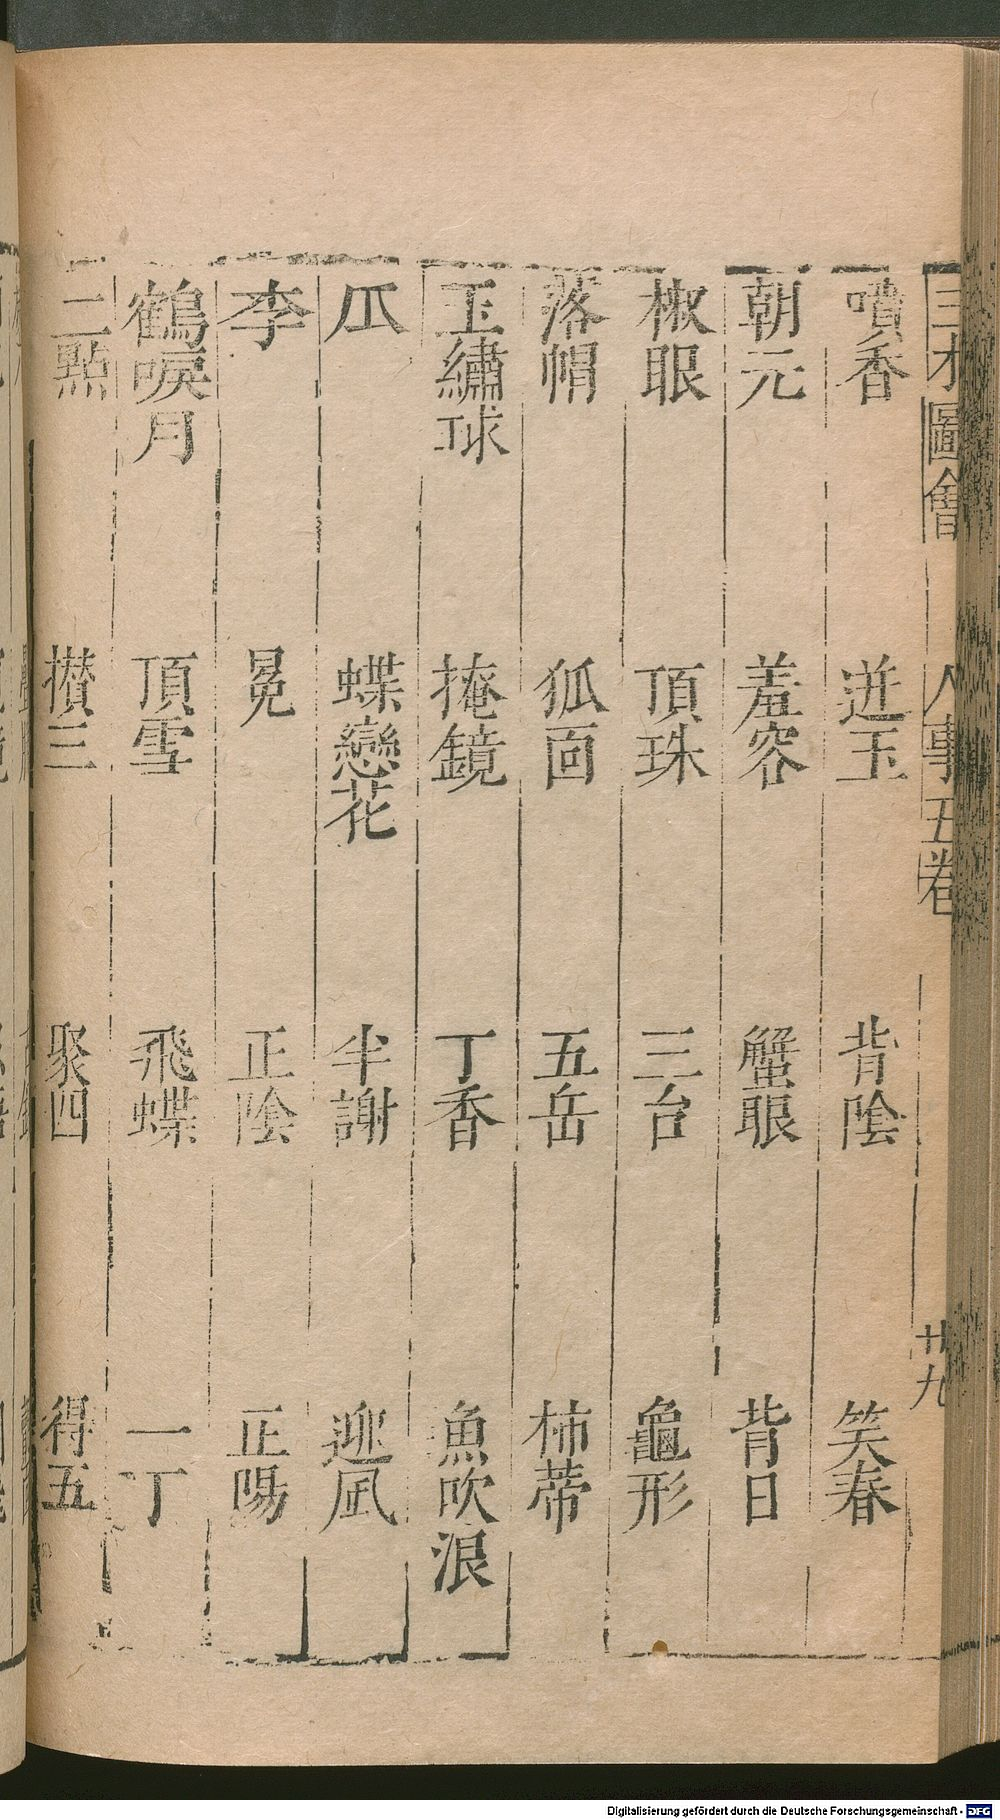 三才圖會 人事五卷 廿九
噴香 迸玉 背陰 笑春
朝元 羞容 蟹眼 背日
椒眼 頂珠 三台 龜形
落帽 狐面 五岳 柿蒂
玉繡球 掩鏡 丁香 魚吹浪
瓜 蝶戀花 半謝 迎風
李 冕 正陰 正陽
鶴唳月 頂雪 飛蝶 一丁
二點 攢三 聚四 得五
Digitalisierung gefördert durch die Deutsche Forschungsgemeinschaft - DFG